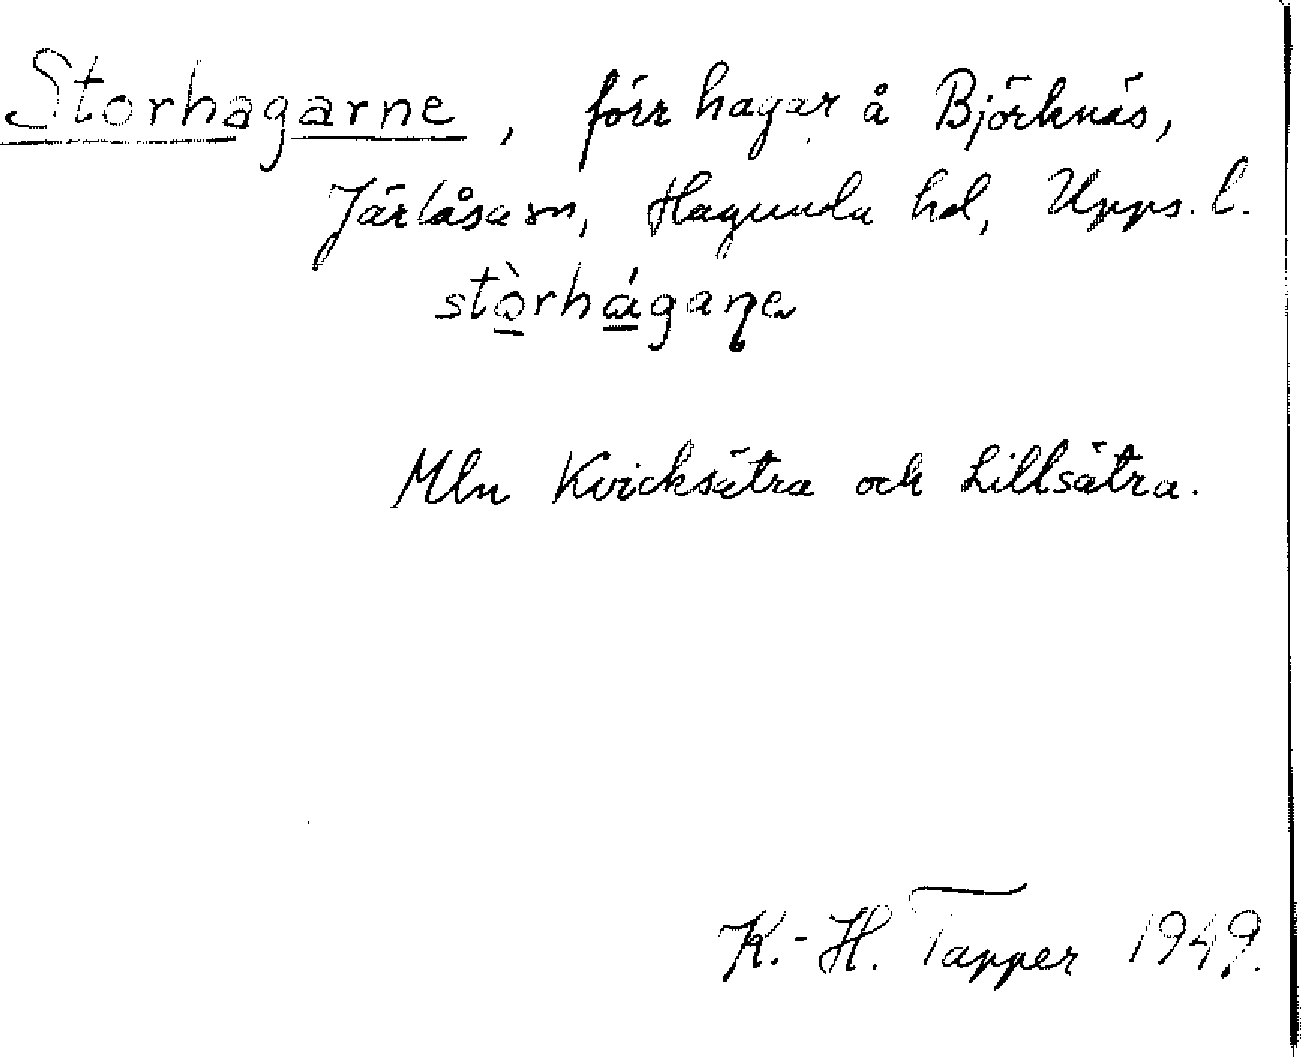 Storhagarne, förr hagar å Björknäs,
Järlåsa sn, Hagunda hd, Upps. l.
stòrhágaɳe
Mln Kvicksätra och Lillsätra.
K.-H. Tapper 1949.